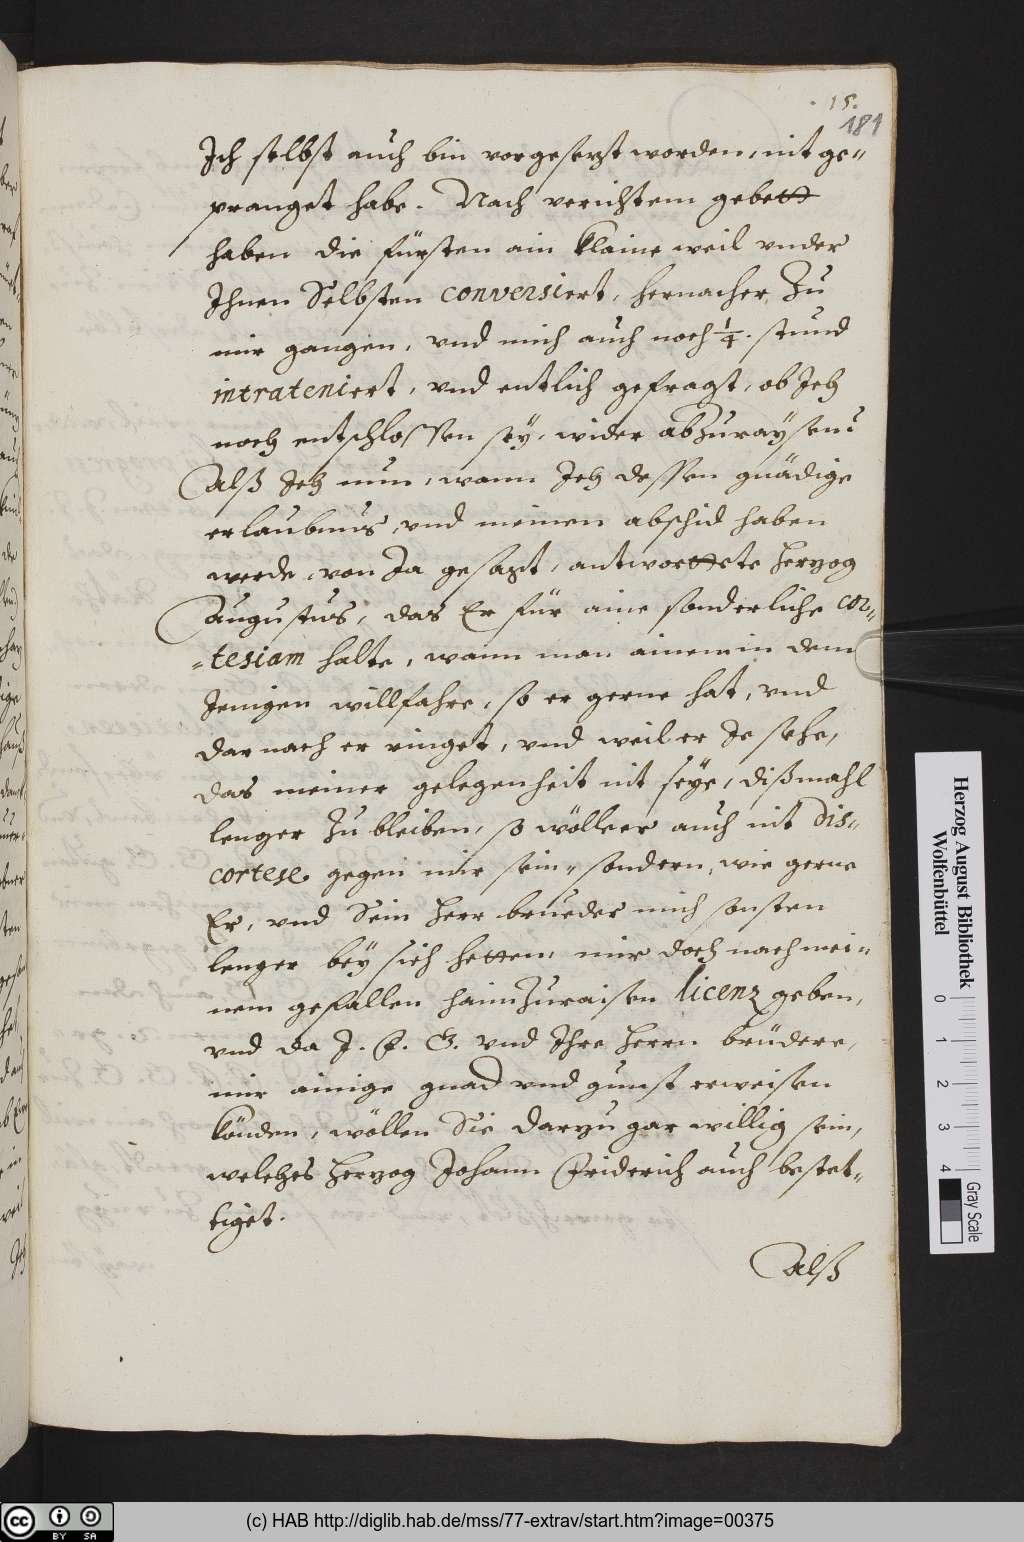 15.
181
Ich selbst auch bin vorgesezt worden, nit ge-
pranget habe. Nach verichtem gebett
haben die fürsten ain klaine weil vnder
Ihnen Selbsten conversiert, hernacher Zu
mir gangen, vnd mich auch noch 1/4. stund
intrateniert, vnd entlich gefragt, ob Ich
noch entschlossen sey, wider abzuraysen?
Alß Ich nun, wann Ich dessen gnädige
erlaubnus, vnd meinen abschid haben
werde, von Ja gesagt, antworttete Herzog
Augustus, das Er für aine sonderliche cor-
-tesiam halte, wann man ainem in dem
Jenigen willfahre, so er gerne hat, vnd
darnach er ringet, vnd weil er Je sehe,
das meiner gelegenheit nit seye, dißmahl
lenger Zu bleiben, so wölle er auch nit dis-
cortese gegen mir sein, sondern, wie gerne
Er, vnd Sein Herr brueder mich sonsten
lenger bey sich hetten, mir doch nach mei-
nem gefallen haimZuraisen licenz geben,
vnd da J. F. G. vnd Ihre Herrn brüdere,
mir ainige gnad vnd gunst erweisen
könden, wöllen Sie darzu gar willig sein,
welches Herzog Johann Friderich auch bestet-
tiget.
Alß
Herzog August Bibliothek
Wolfenbüttel
0 1 2 3 4
Gray Scale
(c) HAB http://diglib.hab.de/mss/77-extrav/start.htm?image=00375
cc BY SA